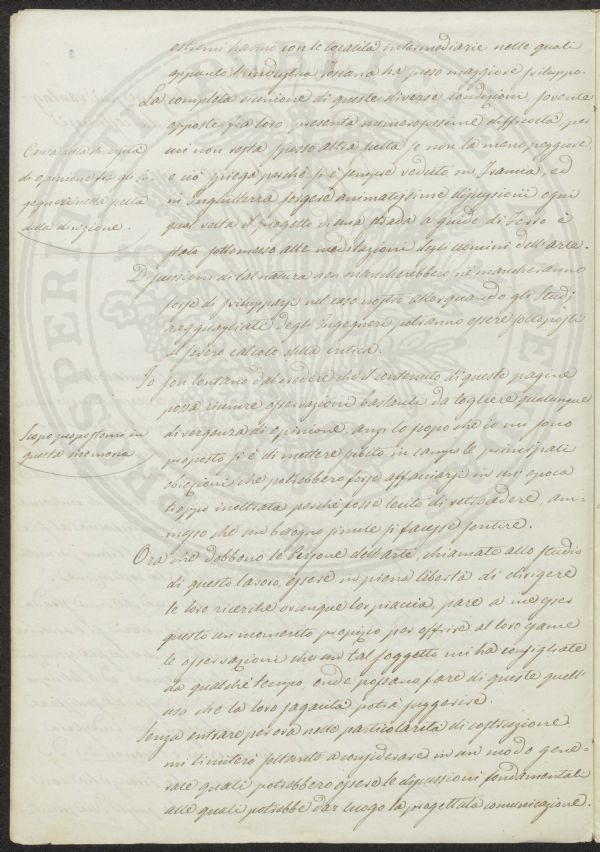 estremi hanno con le località intermediarie nelle quali
appunto l'industria Toscana ha preso maggiore sviluppo.
La completa riunione di queste diverse condizioni, sovente
opposte fra loro, presenta numerosissime difficoltà, per
cui non resta spesso altra scelta se non la meno peggiore,
e ciò spiega perché si è sempre veduto in Francia, ed
in Inghilterra sorgere animatissime discussioni ogni
qual volta il progetto di una strada a guide di ferro è
stato sottomesso alle meditazioni degli uomini dell'arte.
Causa della diversità
di opinione fra gli In-
gegneri nella scelta
della direzione.
Discussioni di tal natura non mancherebbero nè mancheranno
forse di svilupparsi nel caso nostro allorquando gli studj
ragguagliati degli Ingegneri, potranno essere sottoposti
al severo calcolo della critica.
Io son lontano dal credere che il contenuto di queste pagine
possa riunire osservazioni bastanti da togliere qualunque
divergenza di opinione, anzi lo scopo che io mi sono
proposto si è di mettere subito in campo le principali
obiezioni che potrebbero forse affacciarsi in un'epoca
troppo inoltrata perché fosse lecito di retrocedere, am-
messo che un bisogno simile si facesse sentire.
Scopo propostomi in
questa memoria
Ora che debbono le Persone dell'arte, chiamate allo studio
di questo lavoro, essere in piena libertà di dirigere
le loro ricerche ovunque lor piaccia, pare a me esser
questo un momento propizio per offrire al loro esame
le osservazioni che un tal soggetto mi ha consigliate
da qualche tempo onde possano fare di queste quell'
uso che la loro sagacità potrà suggerire.
Senza entrare per ora nelle particolarità di costruzione
mi limiterò soltanto a considerare in un modo gene-
rale quali potrebbero essere le discussioni fondamentali
alle quali potrebbe dar luogo la progettata comunicazione.